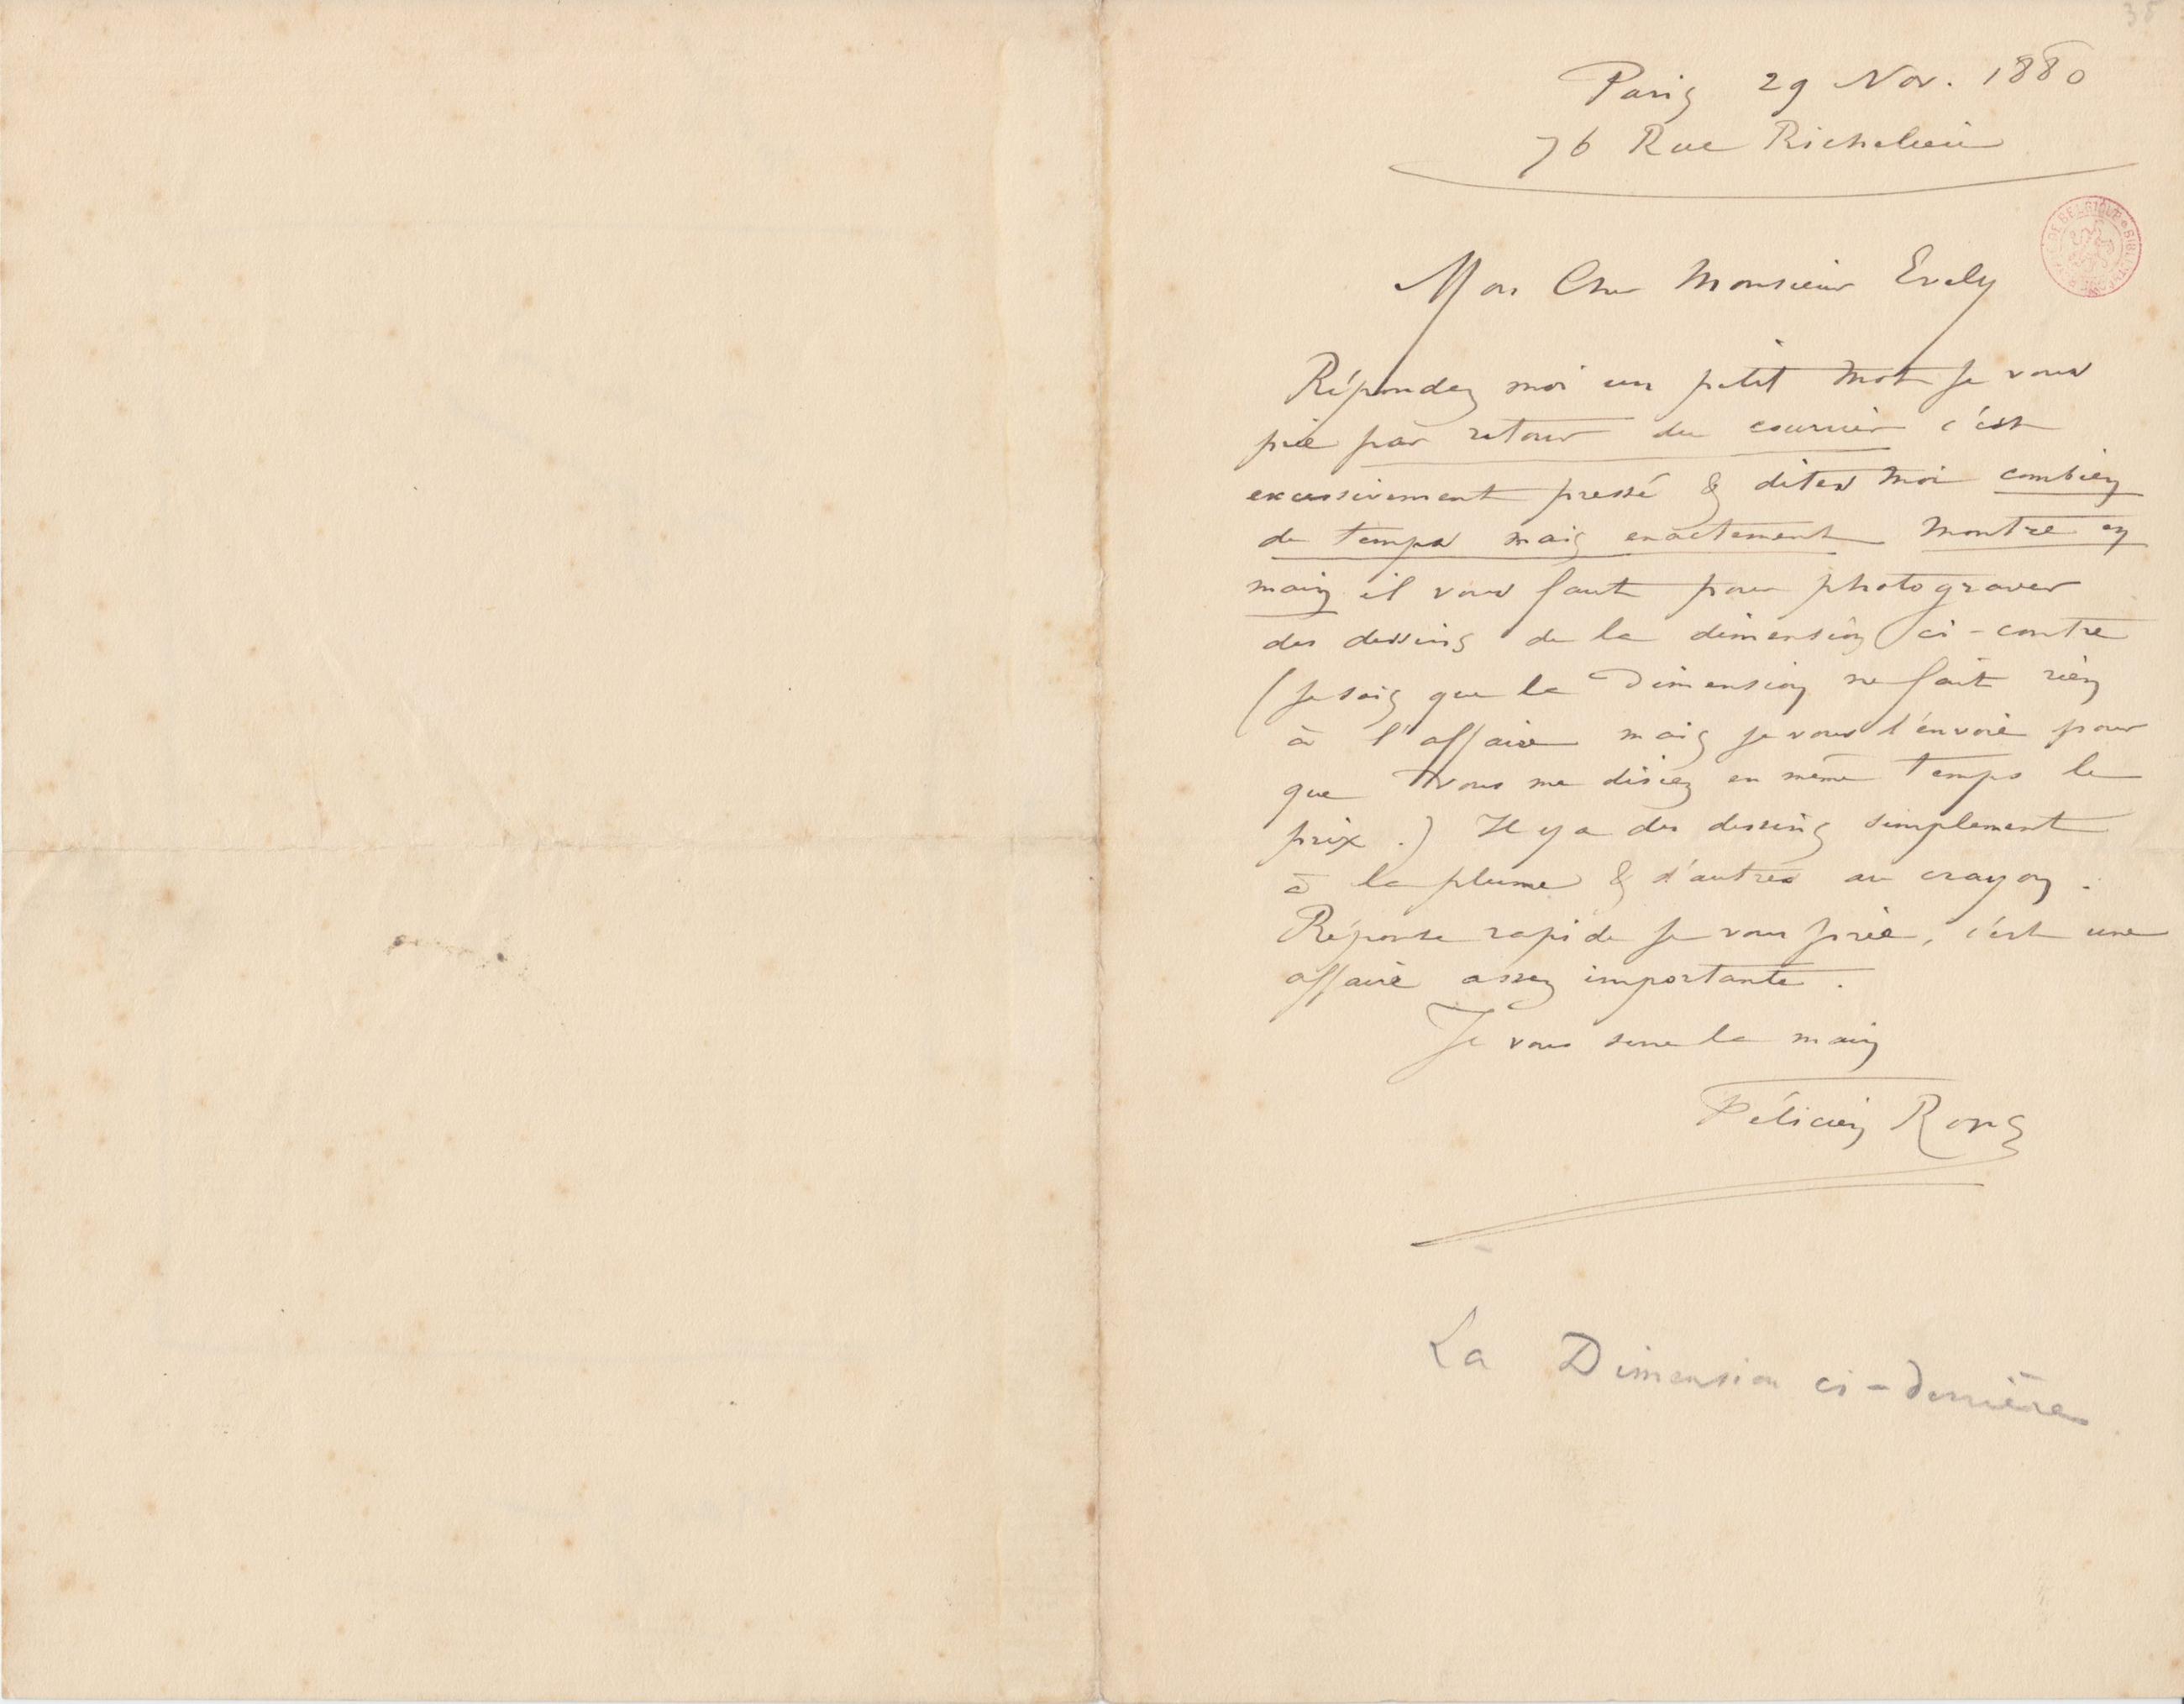 38
Paris 29 Nov. 1880
76 Rue Richelieu
Mon Cher Monsieur Evely
Répondez moi un petit mot je vous
prie par retour du courrier c'est
excessivement pressé & dites moi combien
de temps mais exactement montre en
main il vous faut pour photograver
des dessins de la dimension ci-contre
(je sais que la Dimension ne fait rien
à l'affaire mais je vous l'envoie pour
que vous me disiez en même temps le
prix.) Il y a des dessins simplement
à la plume & d'autres au crayon.
Réponse rapide je vous prie, c'est une
affaire assez importante.
Je vous serre la main
Félicien Rops
La Dimension ci-derrière